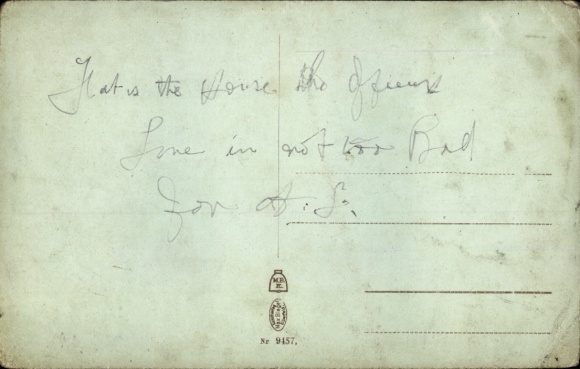 That is the House the officers
Live in not too Bad
for A. S.
M.B.
K.
Nr 9457.